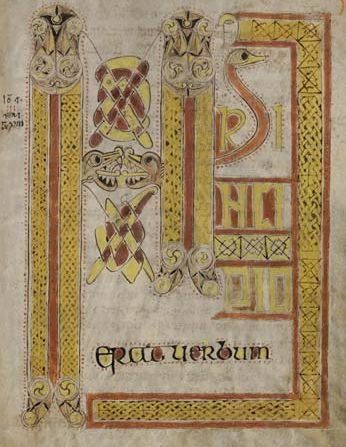 INPRI
NCI
PIO
erat uerbum